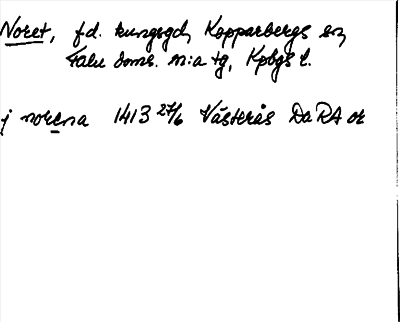 Noret, f.d. kungsgd, Kopparbergs sn,
Falu doms. n:a tg, Kpbgs l.
j norena 1413 27/6 Västerås Da RA or